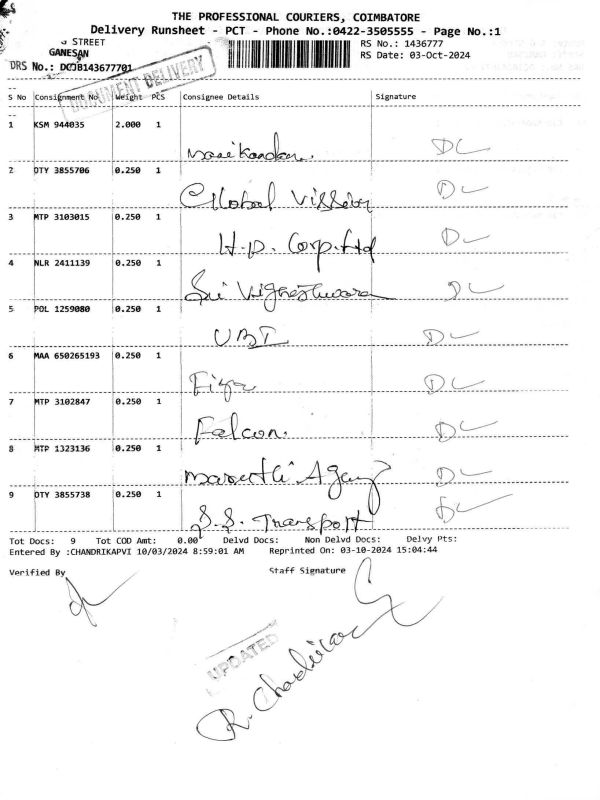 THE PROFESSIONAL COURIERS, COIMBATORE
Delivery Runsheet - PCT - Phone No.:0422-3505555 - Page No.:1
STREET
RS No.: 1436777
GANESAN
RS Date: 03-Oct-2024
DRS No.: DCJB143677701
DOCUMENT DELIVERY
S No Consignment No Weight PCS Consignee Details Signature
1 KSM 944035 2.000 1
Manikandan. DL
2 OTY 3855706 0.250 1
Global DL
3 MTP 3103015 0.250 1
H.P. Corp. Ltd DL
4 NLR 2411139 0.250 1
Sri Vigneshwara DL
5 POL 1259080 0.250 1
UBI DL
6 MAA 650265193 0.250 1
DL
7 MTP 3102847 0.250 1
Falcon. DL
8 MTP 1323136 0.250 1
Maruthi Agency DL
9 OTY 3855738 0.250 1
S.S. Transport DL
Tot Docs: 9 Tot COD Amt: 0.00 Delvd Docs: Non Delvd Docs: Delvy Pts:
Entered By :CHANDRIKAPVI 10/03/2024 8:59:01 AM Reprinted On: 03-10-2024 15:04:44
Verified By Staff Signature
UPDATED